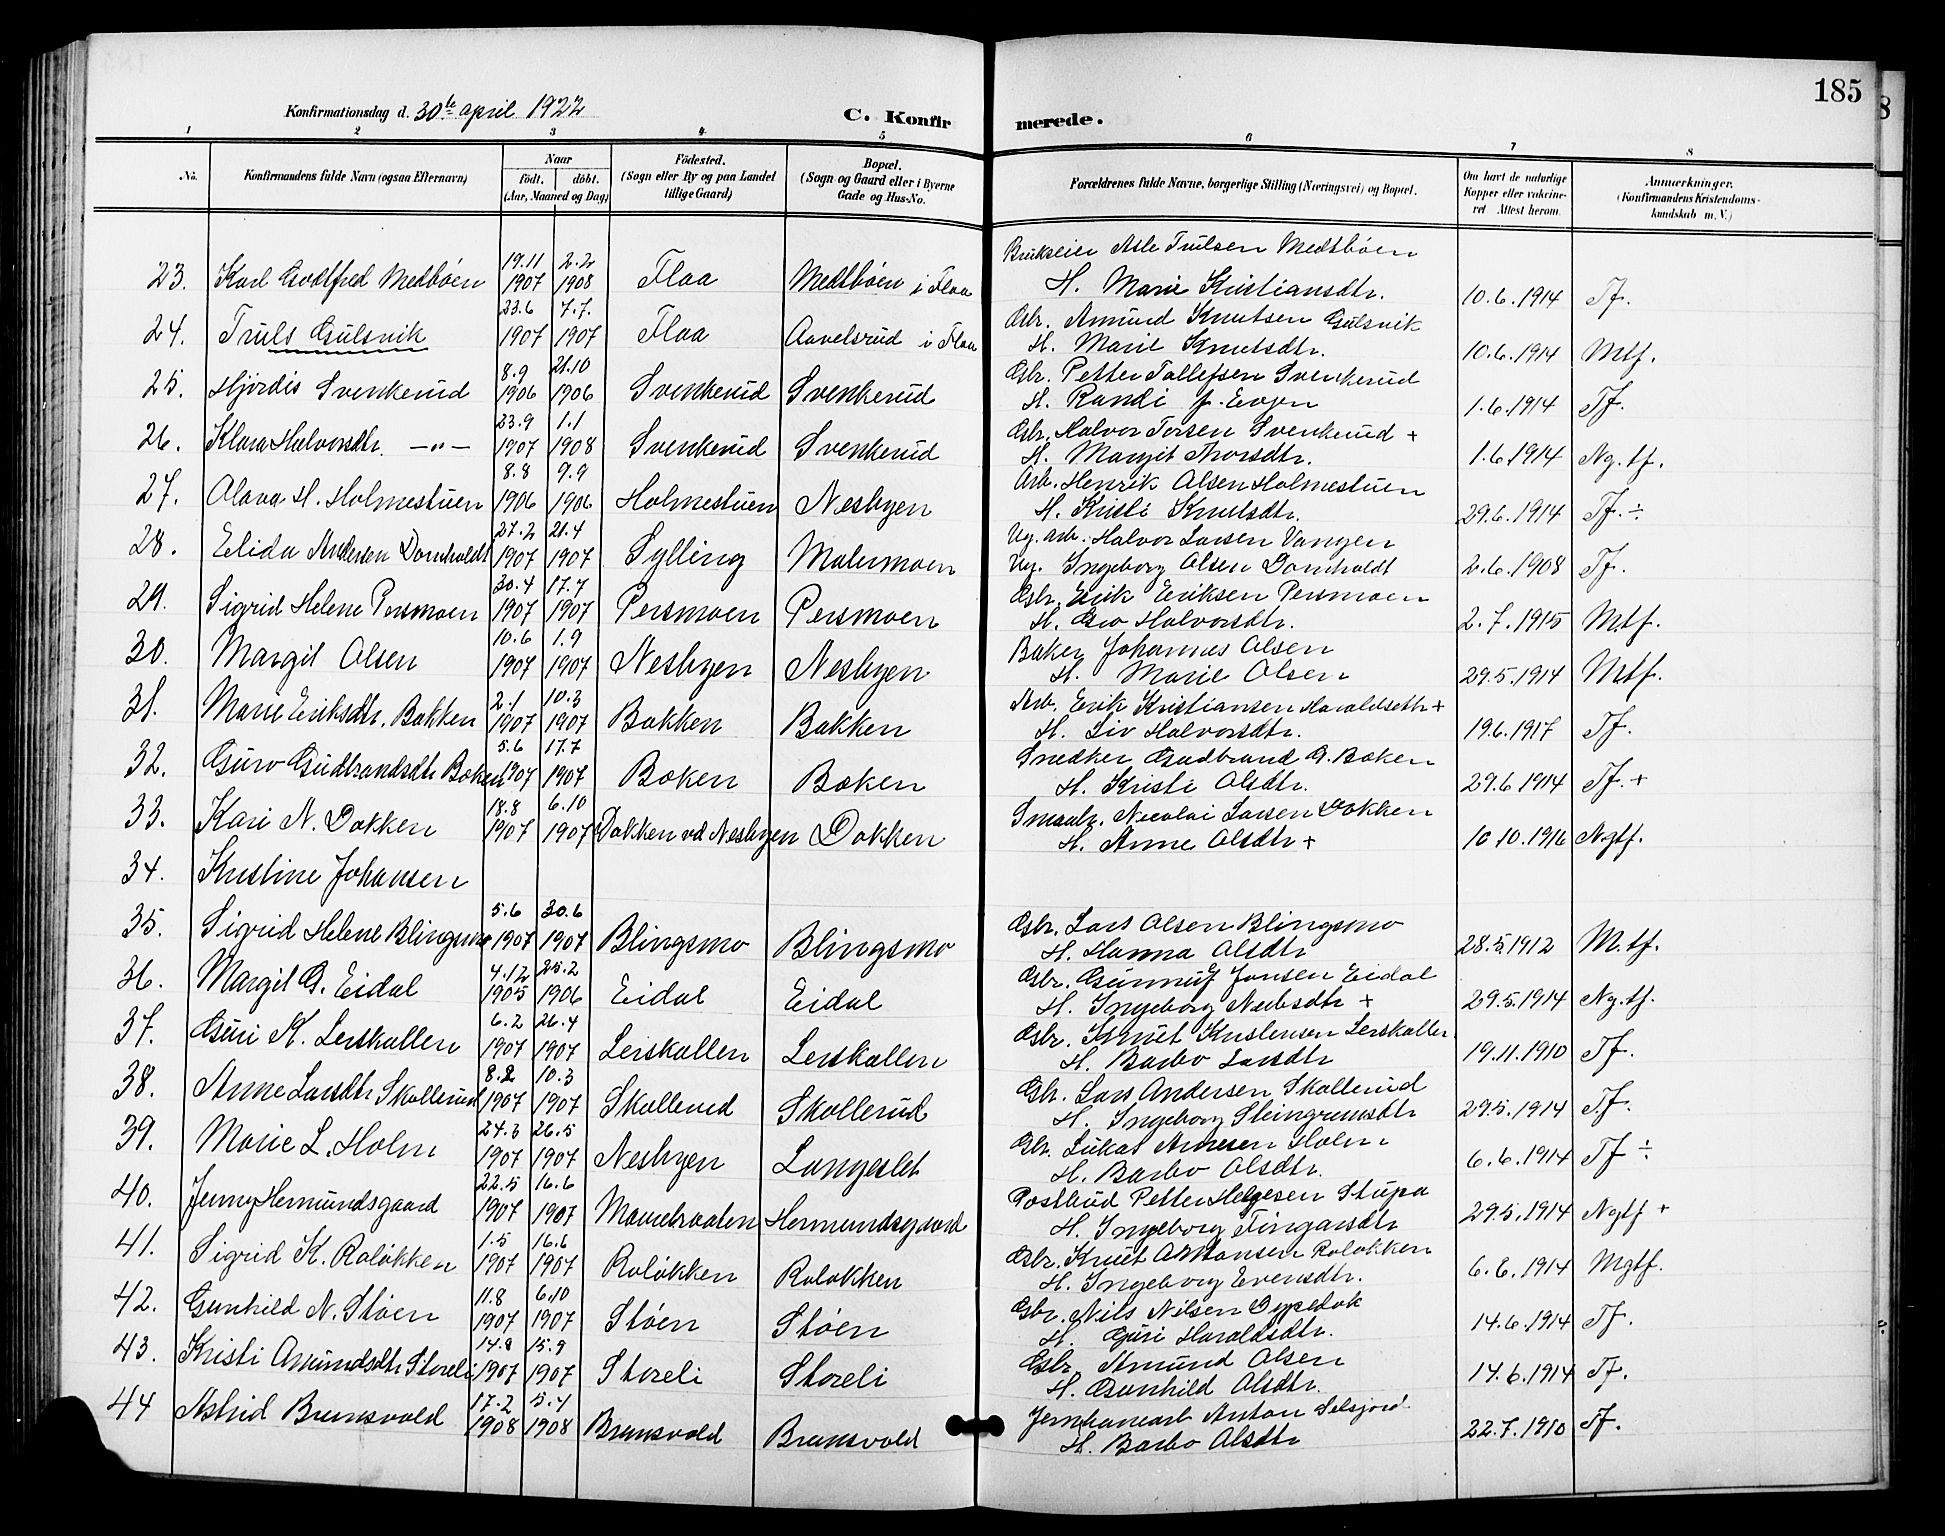 185
Konfirmationsdag d. 30te april 1922
C. Konfirmerede.
1 2 3 4 5 6 7 8
No. Konfirmandens fulde Navn (ogsaa Efternavn) Naar födt. döbt. (Aar, Maaned og Dag) Födested. (Sogn eller By og paa Landet tillige Gaard) Bopæl. (Sogn og Gaard eller i Byerne Gade og Hus-No. Forældrenes fulde Navne, borgerlige Stilling (Næringsvei) og Bopæl. Om havt de naturlige Kopper eller vakcineret Attest herom. Anmærkninger. (Konfirmandens Kristendomskundskab m. V.)
19.11 2.2 Brukseier Asle Trulsen Medsböen
23. Karl Godtfred Medböen 1907 1908 Flaa Medsböen i Flaa H. Marie Kristiansdtr. 10.6.1914 Tf.
23.6 7.7. Gbr. Amund Knutsen Gulsvik
24. Truls Gulsvik 1907 1907 Flaa Aavelsrud i Flaa H. Marie Knutsdtr. 10.6.1914 Mtf.
8.9 21.10 Gbr. Petter Tollefsen Svenkerud
25. Hjördis Svenkerud 1906 1906 Svenkerud Svenkerud H. Randi f. Evjen 1.6.1914 Tf.
23.9 1.1 Gbr. Halvor Torsen Svenkerud +
26. Klara Halvorsdtr. —"— 1907 1908 Svenkerud Svenkerud H. Margit 1.6.1914 Ng.tf.
8.8 9.9 Arb. Henrik Olsen Holmestuen
27. Olava H. Holmestuen 1906 1906 Holmestuen Nesbyen H. Kristi Knutsdtr. 29.6.1914 Tf. ÷
27.2 21.4 Ug. arb. Halvor Larsen Vangen
28. Elida Andersen Domholdt 1907 1907 Sylling Malermoen Ug. Ingeborg Olsen Domholdt 2.6.1908 Tf.
30.4 17.7 Gbr. Erik Eriksen Persmoen
29. Sigrid Helene Persmoen 1907 1907 Persmoen Persmoen H. Gro Halvorsdtr. 2.7.1915 Mtf.
10.6 1.9 Baker Johannes Olsen
30. Margit Olsen 1907 1907 Nesbyen Nesbyen H. Marie Olsen 29.5.1914 Mtf.
2.1 10.3 Arb. Erik Kristiansen Haraldseth +
31. Marie Eriksdtr. Bakken 1907 1907 Bakken Bakken H. Liv Halvorsdtr. 19.6.1917 Tf.
5.6 17.7 Snedker Gudbrand G. Boken
32. Guro Gudbrandsdtr Boken 1907 1907 Boken Boken H. Kristi Olsdtr. 29.6 1914 Tf. +
18.8 6.10 Smaabr. Nicolai Larsen Dokken
33. Kari N. Dokken 1907 1907 Dokken vd Nesbyen Dokken H. Anne Olsdtr + 10.10.1916 Ngtf.
34. Kristine Johansen
5.6 30.6 Gbr. Lars Olsen Blingsmo
35. Sigrid Helene Blingsmo 1907 1907 Blingsmo Blingsmo H. Hanna Olsdtr 28.5.1912 M.tf.
4.12 25.2 Gbr. Gunnuf Jonsen Eidal
36. Margit G. Eidal 1905 1906 Eidal Eidal H. Ingeborg Neubsdtr + 29.5.1914 Ng.tf.
6.2 26.4 Gbr. Knut Kristensen Lerskallen
37. Guri K. Lerskallen 1907 1907 Lerskallen Lerskallen H. Barbo Larsdtr 19.11.1910 Tf.
8.2 10.3 Gbr. Lars Andersen Skollerud
38. Anne Larsdtr Skollerud 1907 1907 Skollerud Skollerud H. Ingeborg Steingrimsdtr 29.5.1914 Tf.
24.3 26.5 Gbr. Lukas Arnesen Holm
39. Marie L. Holm 1907 1907 Nesbyen Langeslet H. Barbo Olsdtr. 6.6.1914 Tf ÷
22.5 16.6 Postbud Petter Helgesen Stupa
40. Jenny Hermundsgaard 1907 1907 Hermundsgaard H. Ingeborg Fingarsdtr 29.5.1914 Ngtf +
1.5 16.6 Gbr. Knut Rolökken
41. Sigrid K. Rolökken 1907 1907 Rolökken Rolökken H. Ingeborg Evensdtr. 6.6.1914 Mgtf.
11.8 6.10 Gbr. Nils Nilsen Dypedok
42. Gunhild N. Stöen 1907 1907 Stöen Stöen H. Guri Haraldsdtr. 14.6.1914 Tf.
14.8 15.9 Gbr. Amund Olsen
43. Kristi Amundsdtr Storeli 1907 1907 Storeli Storeli H. Gunhild Olsdtr. 14.6.1914 Tf.
17.2 5.4 Jernbanearb Anton Selsjord
44 Astrid Brunsvold 1908 1908 Brunsvold Brunsvold H. Barbo Olsdtr 22.7.1910 Tf.